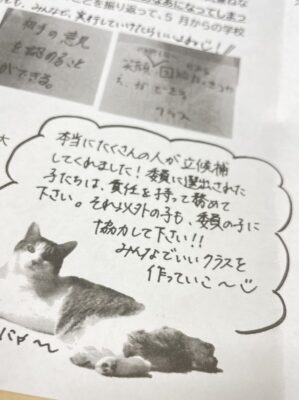 ことを振り返って、5月からの学校
も、みんなで、実行していけたらいいねっじ!!
の意見
を認めること
ができる。
笑顔
クラス
本当にたくさんの人が立候補
してくれました!委員に選出された
子たちは、責任を持って務めて
下さい。それ以外の子も、委員の子に
協力して下さい!!
みんなでいいクラスを
作っていこ〜